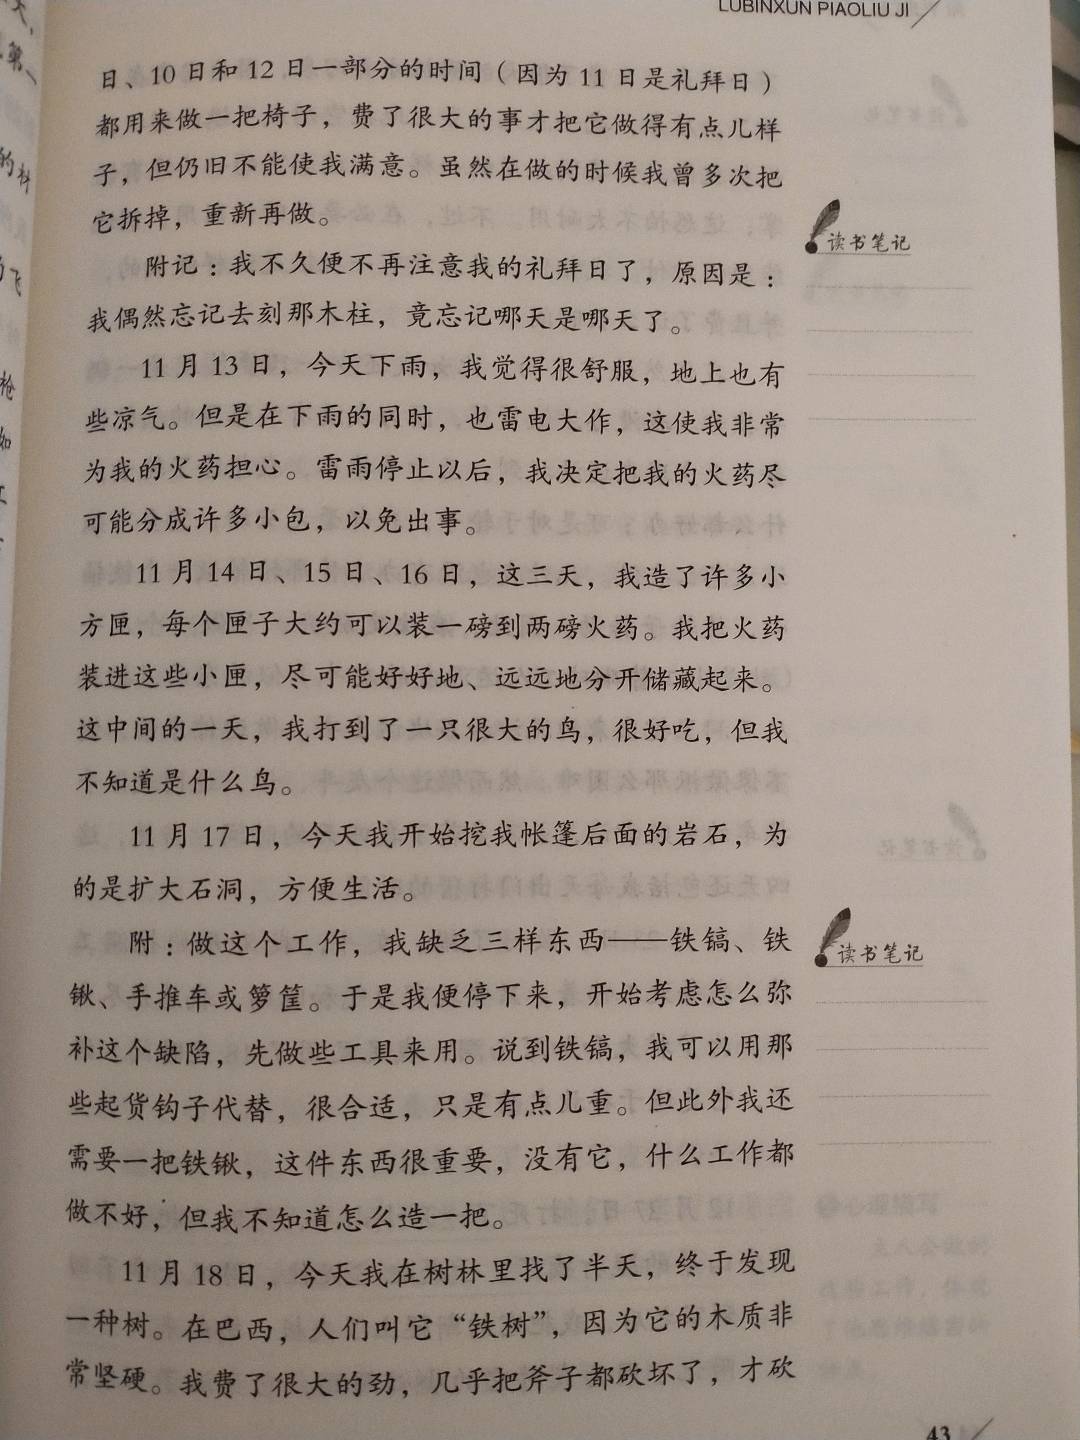 LUBINXUN PIAOLIU JI
日、10 日和 12 日一部分的时间（因为 11 日是礼拜日）
都用来做一把椅子，费了很大的事才把它做得有点儿样
子，但仍旧不能使我满意。虽然在做的时候我曾多次把
它拆掉，重新再做。
附记：我不久便不再注意我的礼拜日了，原因是：
我偶然忘记去刻那木柱，竟忘记哪天是哪天了。
11 月 13 日，今天下雨，我觉得很舒服，地上也有
些凉气。但是在下雨的同时，也雷电大作，这使我非常
为我的火药担心。雷雨停止以后，我决定把我的火药尽
可能分成许多小包，以免出事。
11 月 14 日、15 日、16 日，这三天，我造了许多小
方匣，每个匣子大约可以装一磅到两磅火药。我把火药
装进这些小匣，尽可能好好地、远远地分开储藏起来。
这中间的一天，我打到了一只很大的鸟，很好吃，但我
不知道是什么鸟。
11 月 17 日，今天我开始挖我帐篷后面的岩石，为
的是扩大石洞，方便生活。
附：做这个工作，我缺乏三样东西——铁镐、铁
锹、手推车或箩筐。于是我便停下来，开始考虑怎么弥
补这个缺陷，先做些工具来用。说到铁镐，我可以用那
些起货钩子代替，很合适，只是有点儿重。但此外我还
需要一把铁锹，这件东西很重要，没有它，什么工作都
做不好，但我不知道怎么造一把。
11 月 18 日，今天我在树林里找了半天，终于发现
一种树。在巴西，人们叫它“铁树”，因为它的木质非
常坚硬。我费了很大的劲，几乎把斧子都砍坏了，才砍
读书笔记
读书笔记
43